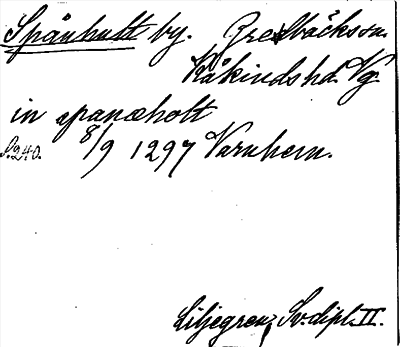 Spånhult by. Bredbäcks sn.
Kåkinds hd. Vg.
in spanæholt
8/9 1297 Varnhem.
S. 240.
Liljegren, Sv. dipl. II.